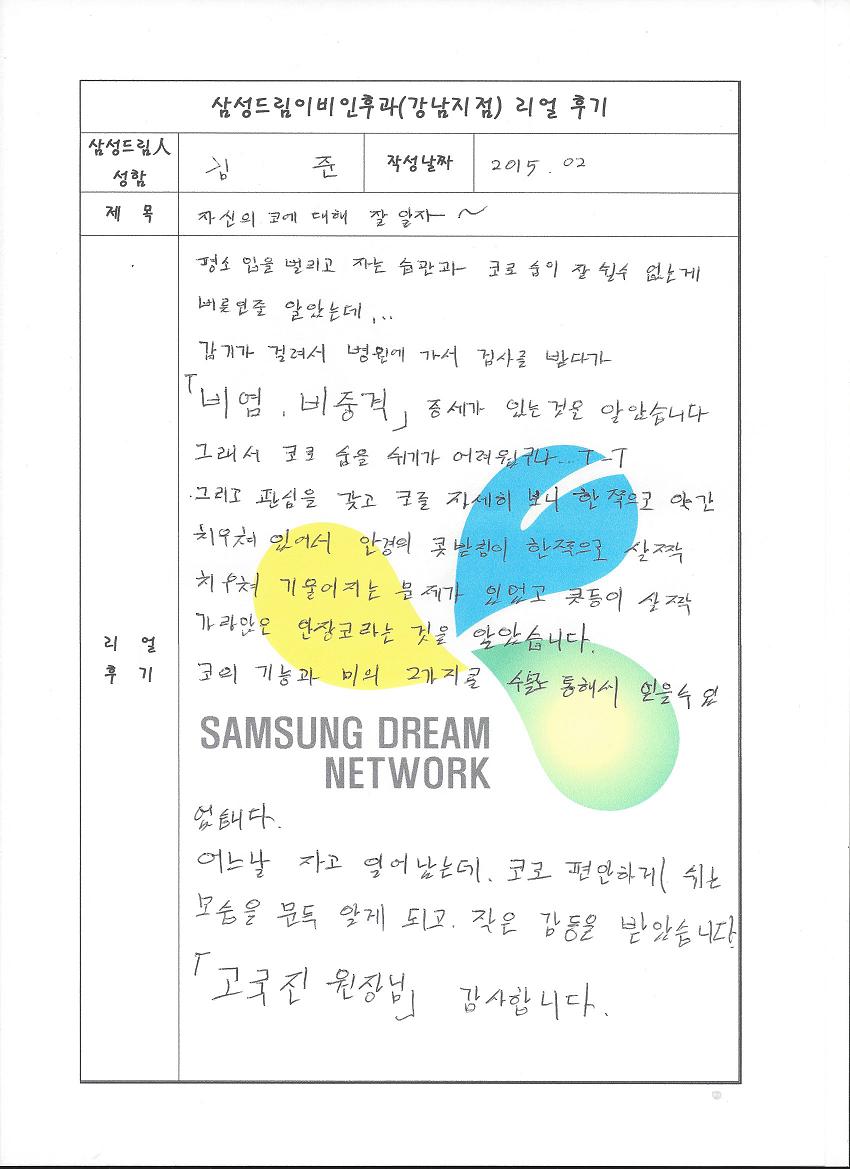 삼성드림이비인후과(강남지점) 리얼 후기
삼성드림人
성함
김 준
작성날짜
2015.02
제 목
자신의 코에 대해 잘 알자 ~
리 얼
후 기
평소 입을 벌리고 자는 습관과 코로 숨이 잘 쉴수 없는게
버릇인줄 알았는데...
감기가 걸려서 병원에 가서 검사를 받다가
「비염, 비중격」 증세가 있는것을 알았습니다
그래서 코로 숨을 쉬기가 어려웠구나... T-T
그리고 관심을 갖고 코를 자세히 보니 한쪽으로 약간
치우쳐 있어서 안경의 콧받침이 한쪽으로 살짝
치우쳐 기울어지는 문제가 있었고 콧등이 살짝
가라앉은 안장코라는 것을 알았습니다.
코의 기능과 미의 2가지를 수술로 통해서 얻을수 있
SAMSUNG DREAM
NETWORK
었습니다.
어느날 자고 일어났는데, 코로 편안하게 쉬는
모습을 문득 알게 되고, 작은 감동을 받았습니다.
「고국진 원장님」 감사합니다.